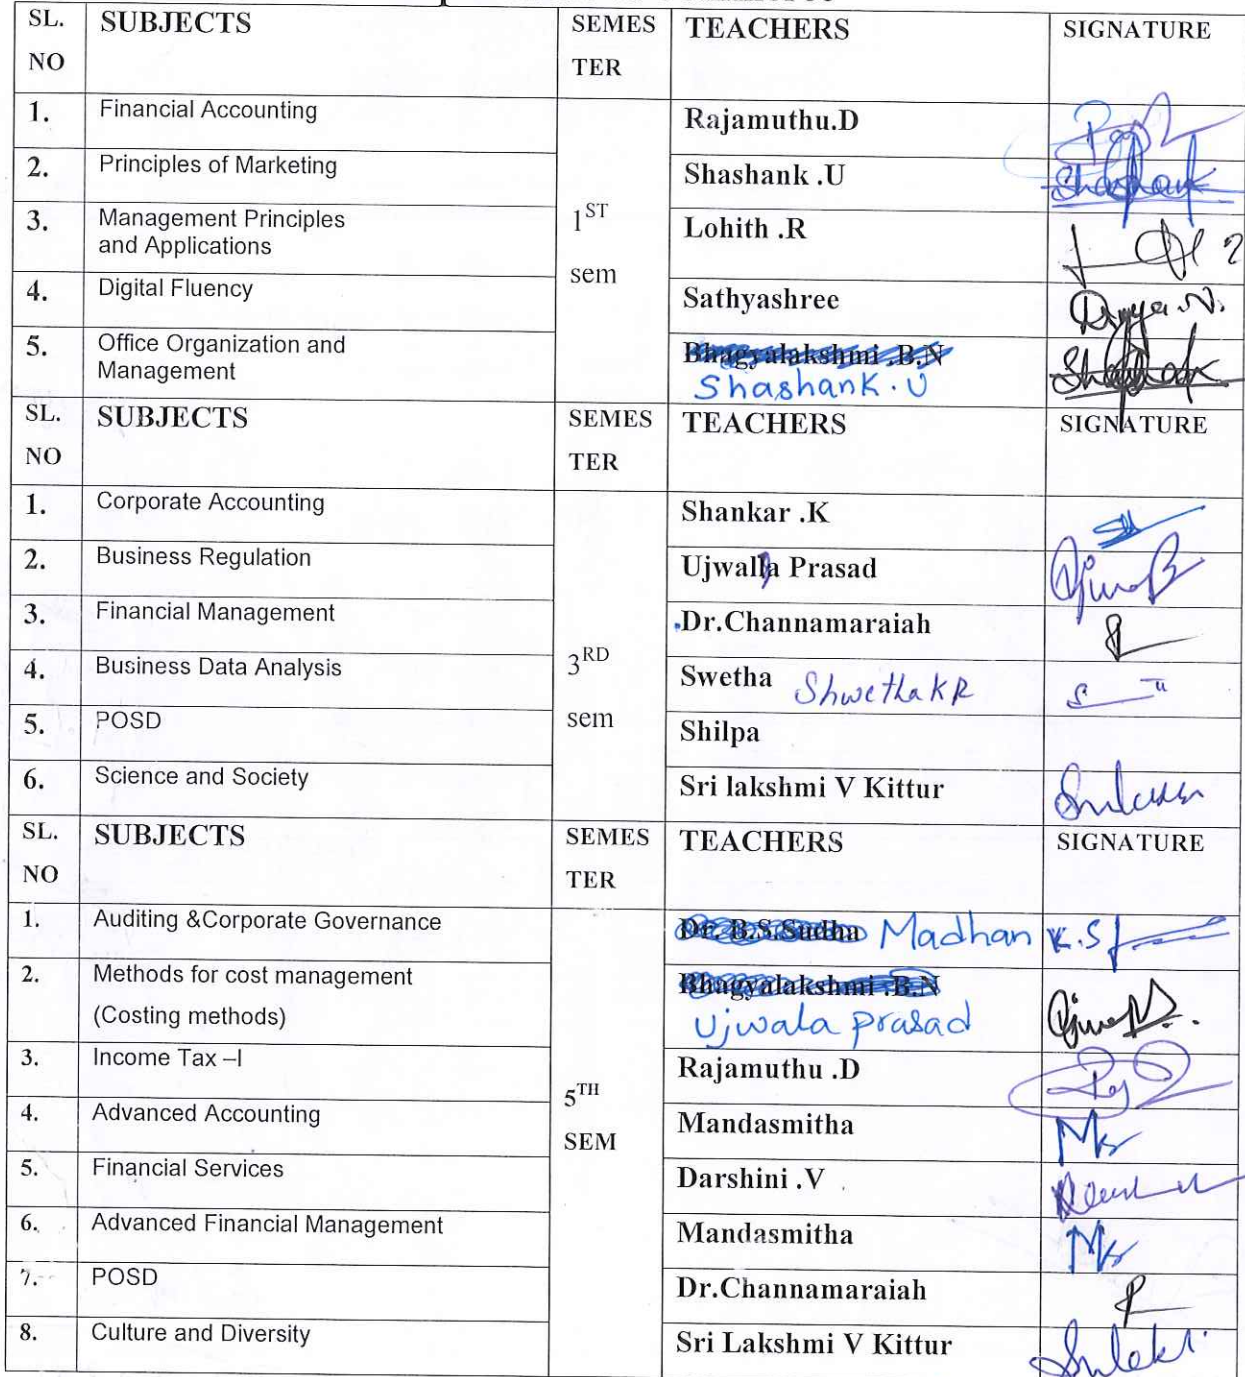 SL. NO SUBJECTS SEMES TER TEACHERS SIGNATURE
1. Financial Accounting Rajamuthu.D
2. Principles of Marketing Shashank .U Shashank
3. Management Principles and Applications 1ST sem Lohith .R
4. Digital Fluency Sathyashree Divya N.
5. Office Organization and Management Bhagyalakshmi .B.N Shashank.U Shashank
SL. NO SUBJECTS SEMES TER TEACHERS SIGNATURE
1. Corporate Accounting Shankar .K
2. Business Regulation Ujwalla Prasad
3. Financial Management Dr.Channamaraiah
4. Business Data Analysis 3RD sem Swetha Shwetha K R
5. POSD Shilpa
6. Science and Society Sri lakshmi V Kittur
SL. NO SUBJECTS SEMES TER TEACHERS SIGNATURE
1. Auditing &Corporate Governance Dr. B.S.Sudha Madhan K.S
2. Methods for cost management (Costing methods) Bhagyalakshmi .B.N Ujwala prasad
3. Income Tax –I 5TH SEM Rajamuthu .D
4. Advanced Accounting Mandasmitha
5. Financial Services Darshini .V
6. Advanced Financial Management Mandasmitha
7. POSD Dr.Channamaraiah
8. Culture and Diversity Sri Lakshmi V Kittur